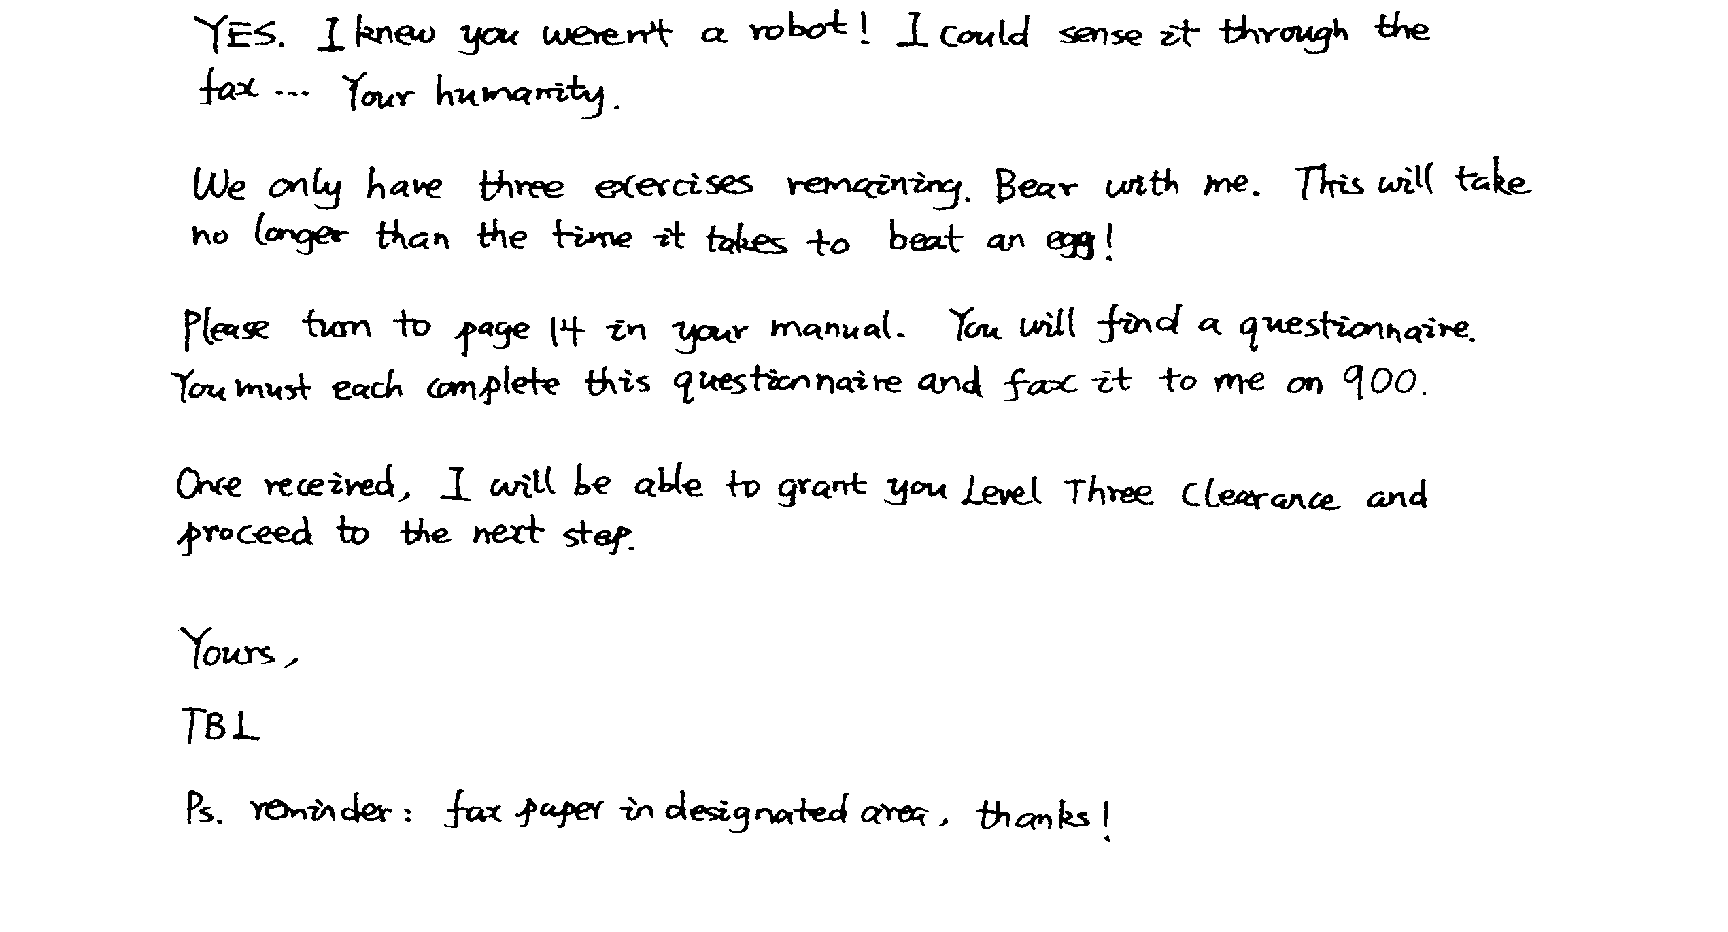 YES. I knew you weren't a robot! I could sense it through the
fax... Your humanity.
We only have three exercises remaining. Bear with me. This will take
no longer than the time it takes to beat an egg!
Please turn to page 14 in your manual. You will find a questionnaire.
You must each complete this questionnaire and fax it to me on 900.
Once received, I will be able to grant you Level Three Clearance and
proceed to the next step.
Yours,
TBL
Ps. reminder: fax paper in designated area, thanks!